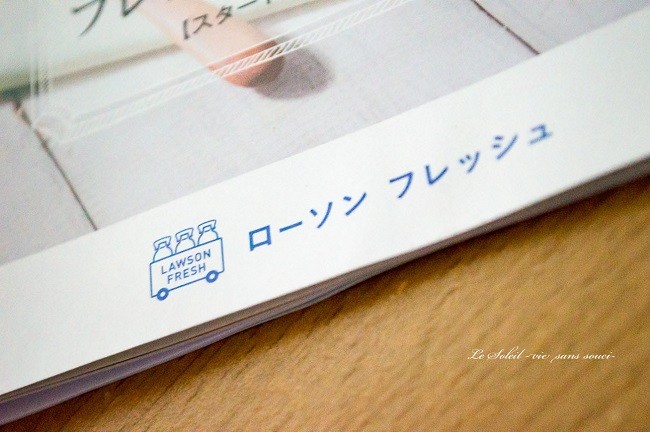 フレ
【スタート
LAWSON
FRESH
ローソン フレッシュ
Le Soleil -vie sans souci-